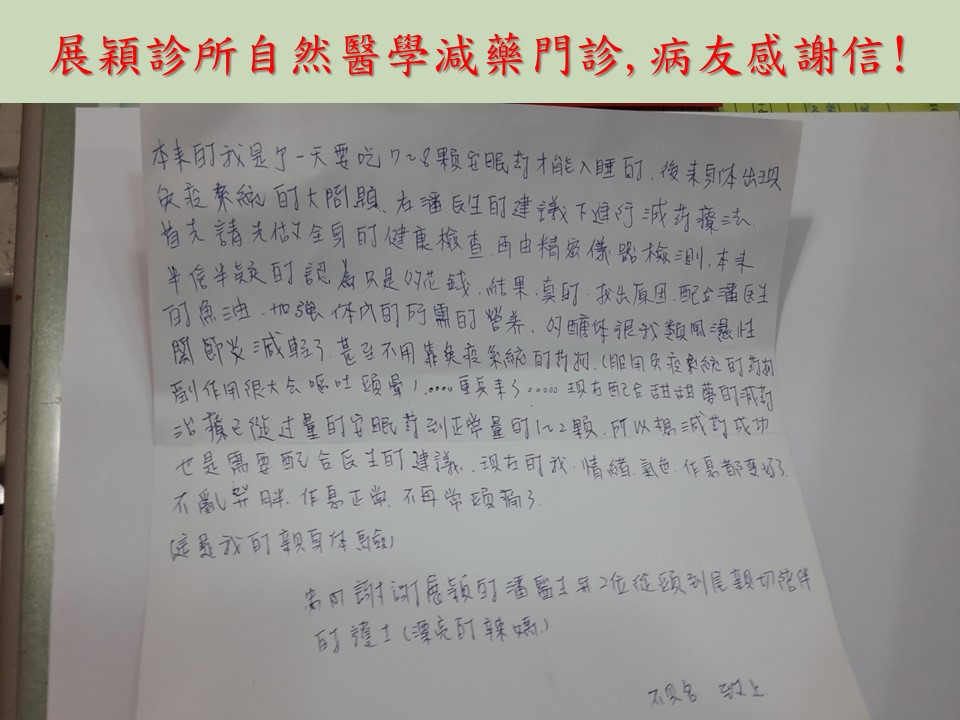 展穎診所自然醫學減藥門診,病友感謝信!
本來的我是了一天要吃7~8顆安眠葯才能入睡的.後來身体出現
免疫系統的大問題.在潘醫生的建議下進行減葯療法.
首先請先做全身的健康檢查.再由精密儀器檢測.本來
半信半疑的認為只是的花錢.結果.真的.找出原因.配合潘医生
的魚油.加強体內的所需的營养.的醣体.我類風濕性
關節炎減輕了.甚至不用靠免疫系統的葯物.(服用免疫系統的葯物
副作用很大会嘔吐頭暈)....重臭來了.....現在配合甜甜夢的減葯
治療已從过量的安眠葯到正常量的1~2顆.所以想減葯成功
也是需要配合医生的建議.現在的我.情緒.氣色.作息都变好了.
不亂發胖.作息正常.不再常頭痛了.
(這是我的親身体驗)
謝謝展穎的潘醫生与2位從頭到尾親切陪伴
的護士(漂亮的辣媽)
不具名 敬上